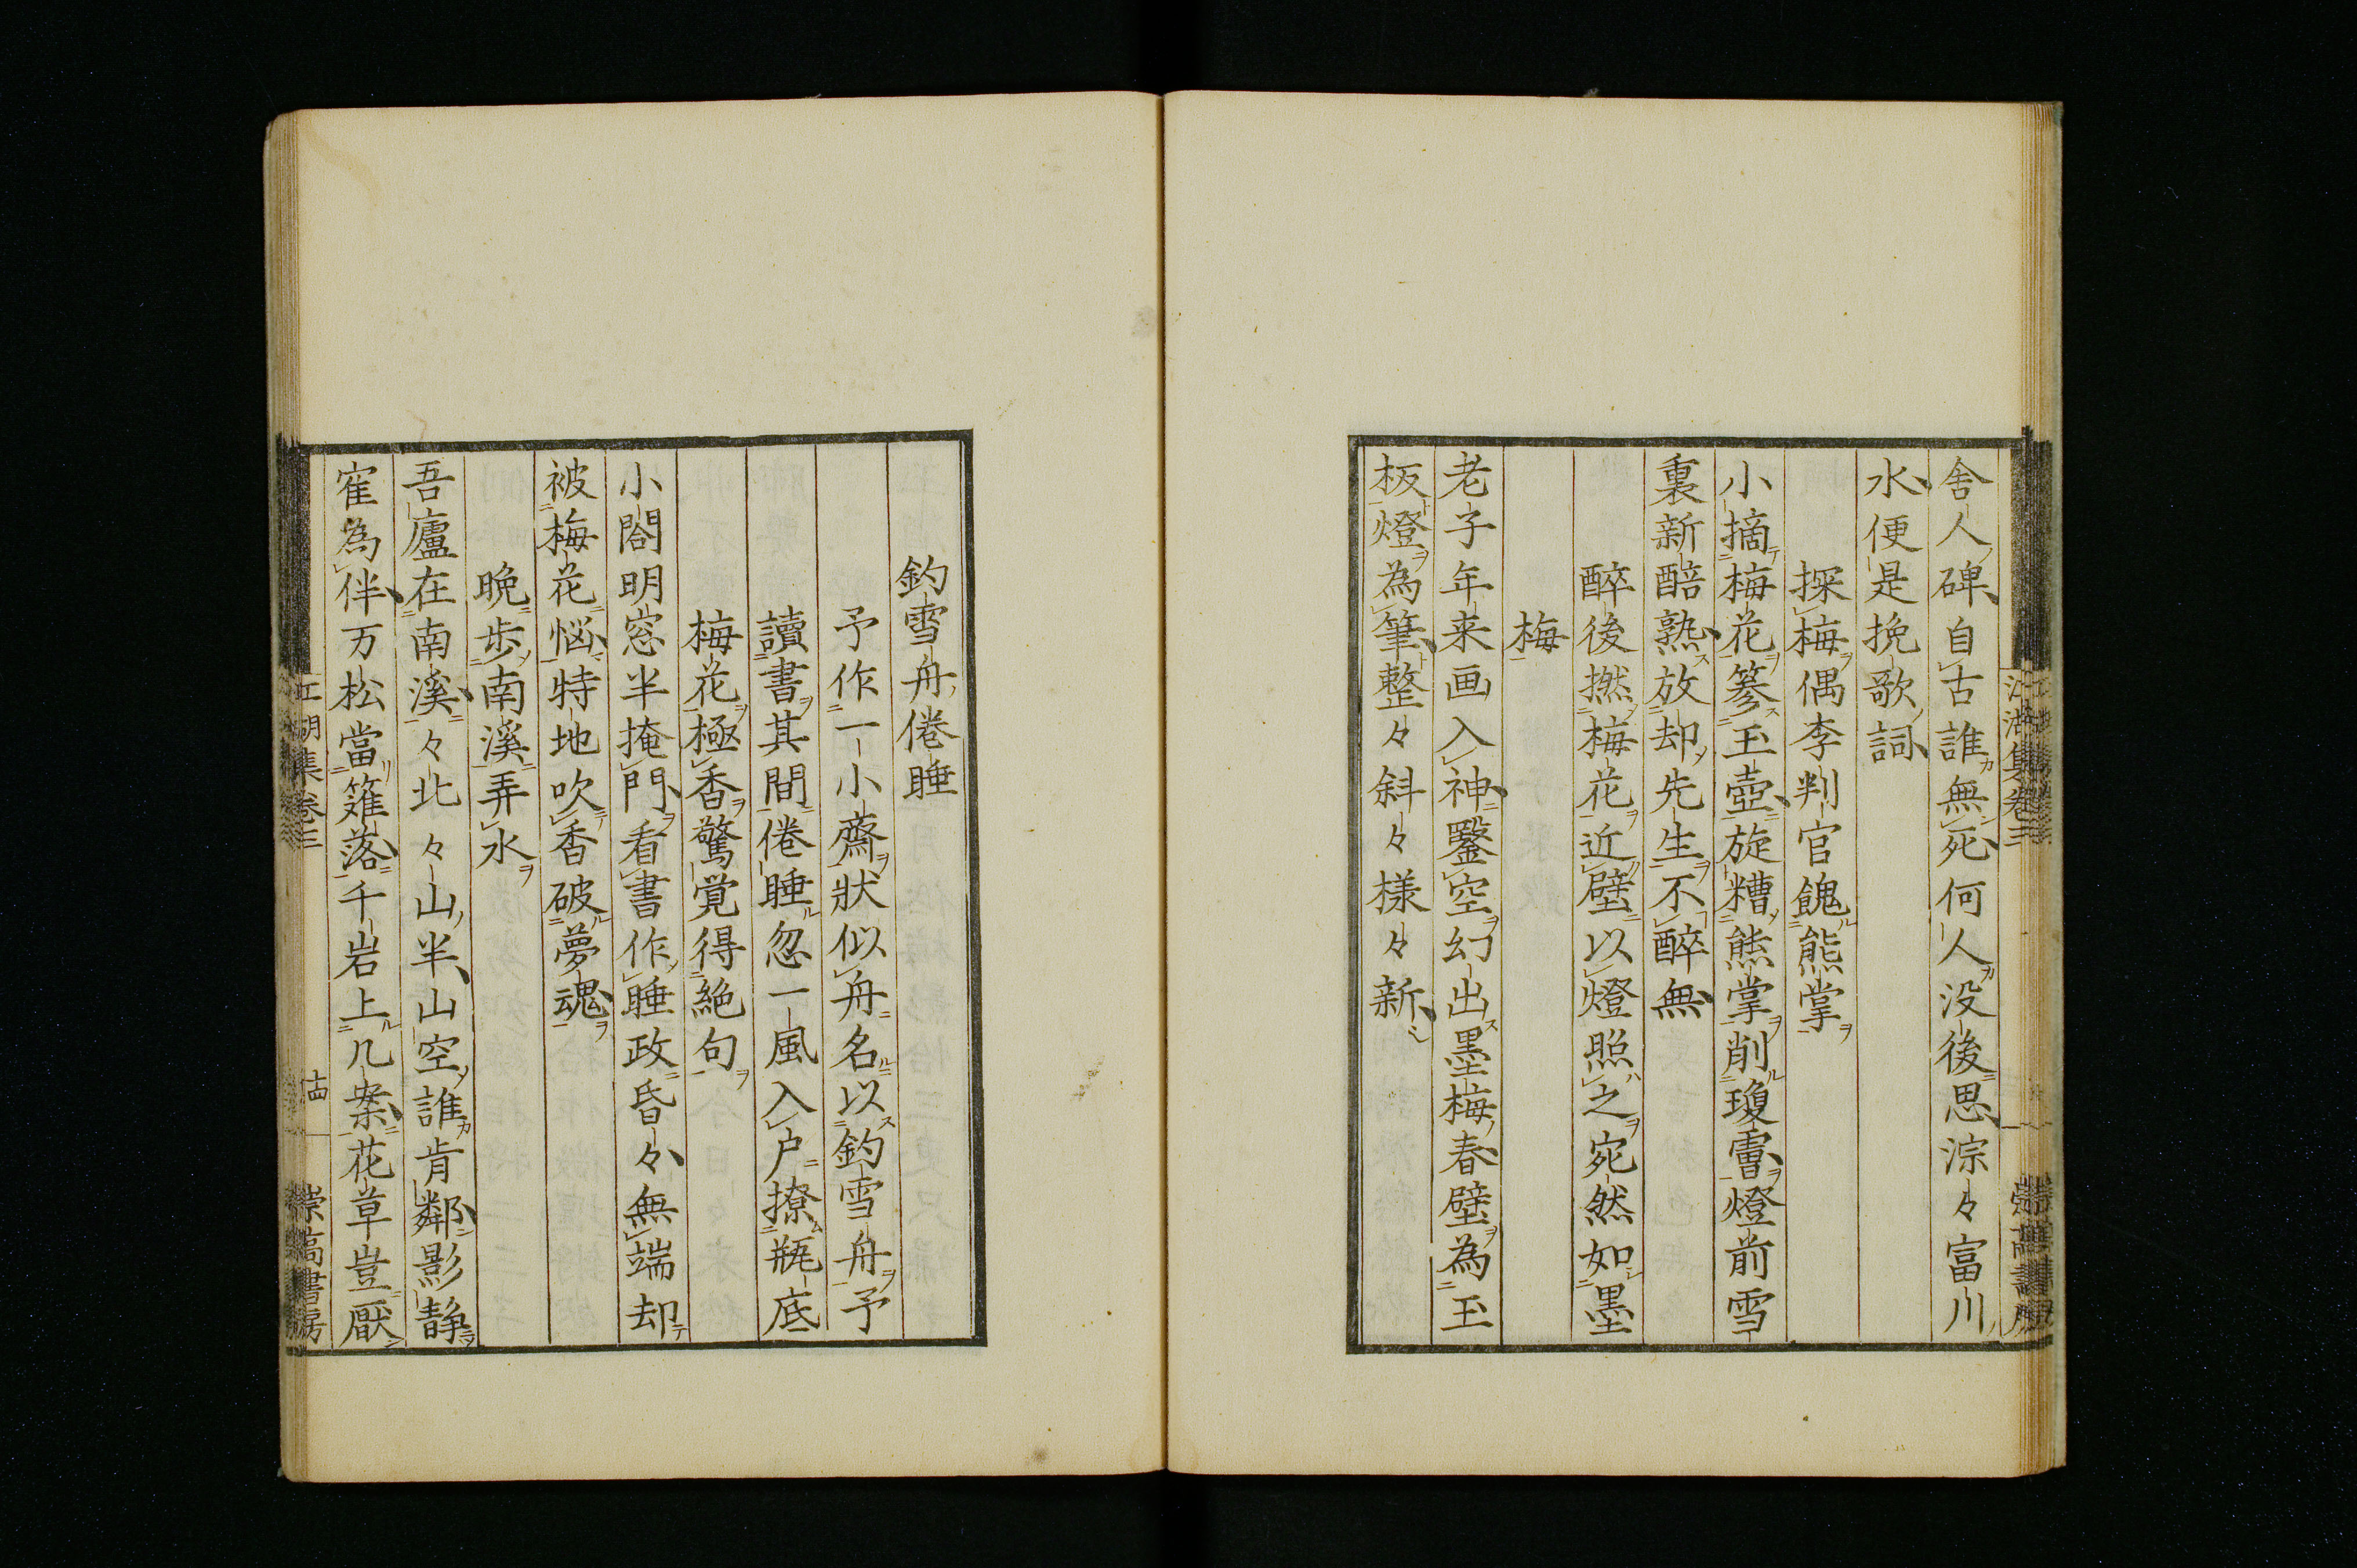 舎人碑自古誰無死何人没後思淙々富川
水便是挽歌詞
探梅偶李判官餽熊掌
小摘梅花篸玉壺旋糟熊掌削瓊雷燈前雪
裏新醅熟放却先生不醉無
醉後撚梅花近壁以燈照之宛然如墨
梅
老子年来画入神鑿空幻出墨梅春壁為玉
板燈為筆整々斜々様々新
江湖集卷三
釣雪舟倦睡
予作一小齋狀似舟名以釣雪舟予
讀書其間倦睡忽一風入户撩瓶底
梅花極香驚覚得絶句
小閤明窓半掩門看書作睡政昏々無端却
被梅花悩特地吹香破夢魂
晩歩南溪弄水
吾廬在南溪々北々山半山空誰肯鄰影静
寉為伴万松當薙落千岩上几案花草豈厭
江湖集卷三
十四
崇高書房